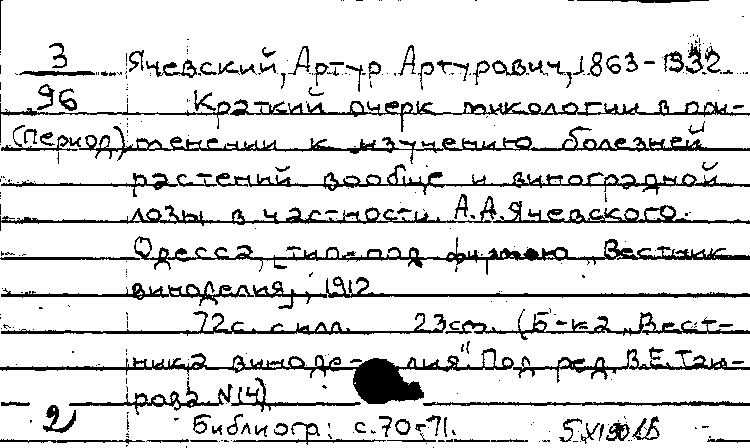 3 Ячевский, Артур Артурович, 1863-1932.
96 Краткий очерк микологии в при-
(период) менении к изучению болезней
растений вообще и виноградной
лозы в частности. А.А.Ячевского.
Одесса, тип. под фирмою „Вестник
виноделия", 1912.
72с. с илл. 23cm. (Б-ка „Вест-
ника виноде- лия". Под ред. В.Е.Таи-
рова N14)
2 Библиогр: с.70-71.